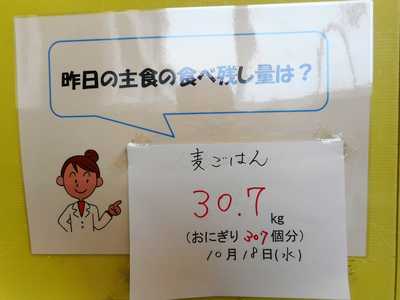 昨日の主食の食べ残し量は？
麦ごはん
30.7 kg
(おにぎり 307 個分)
10月18日(水)